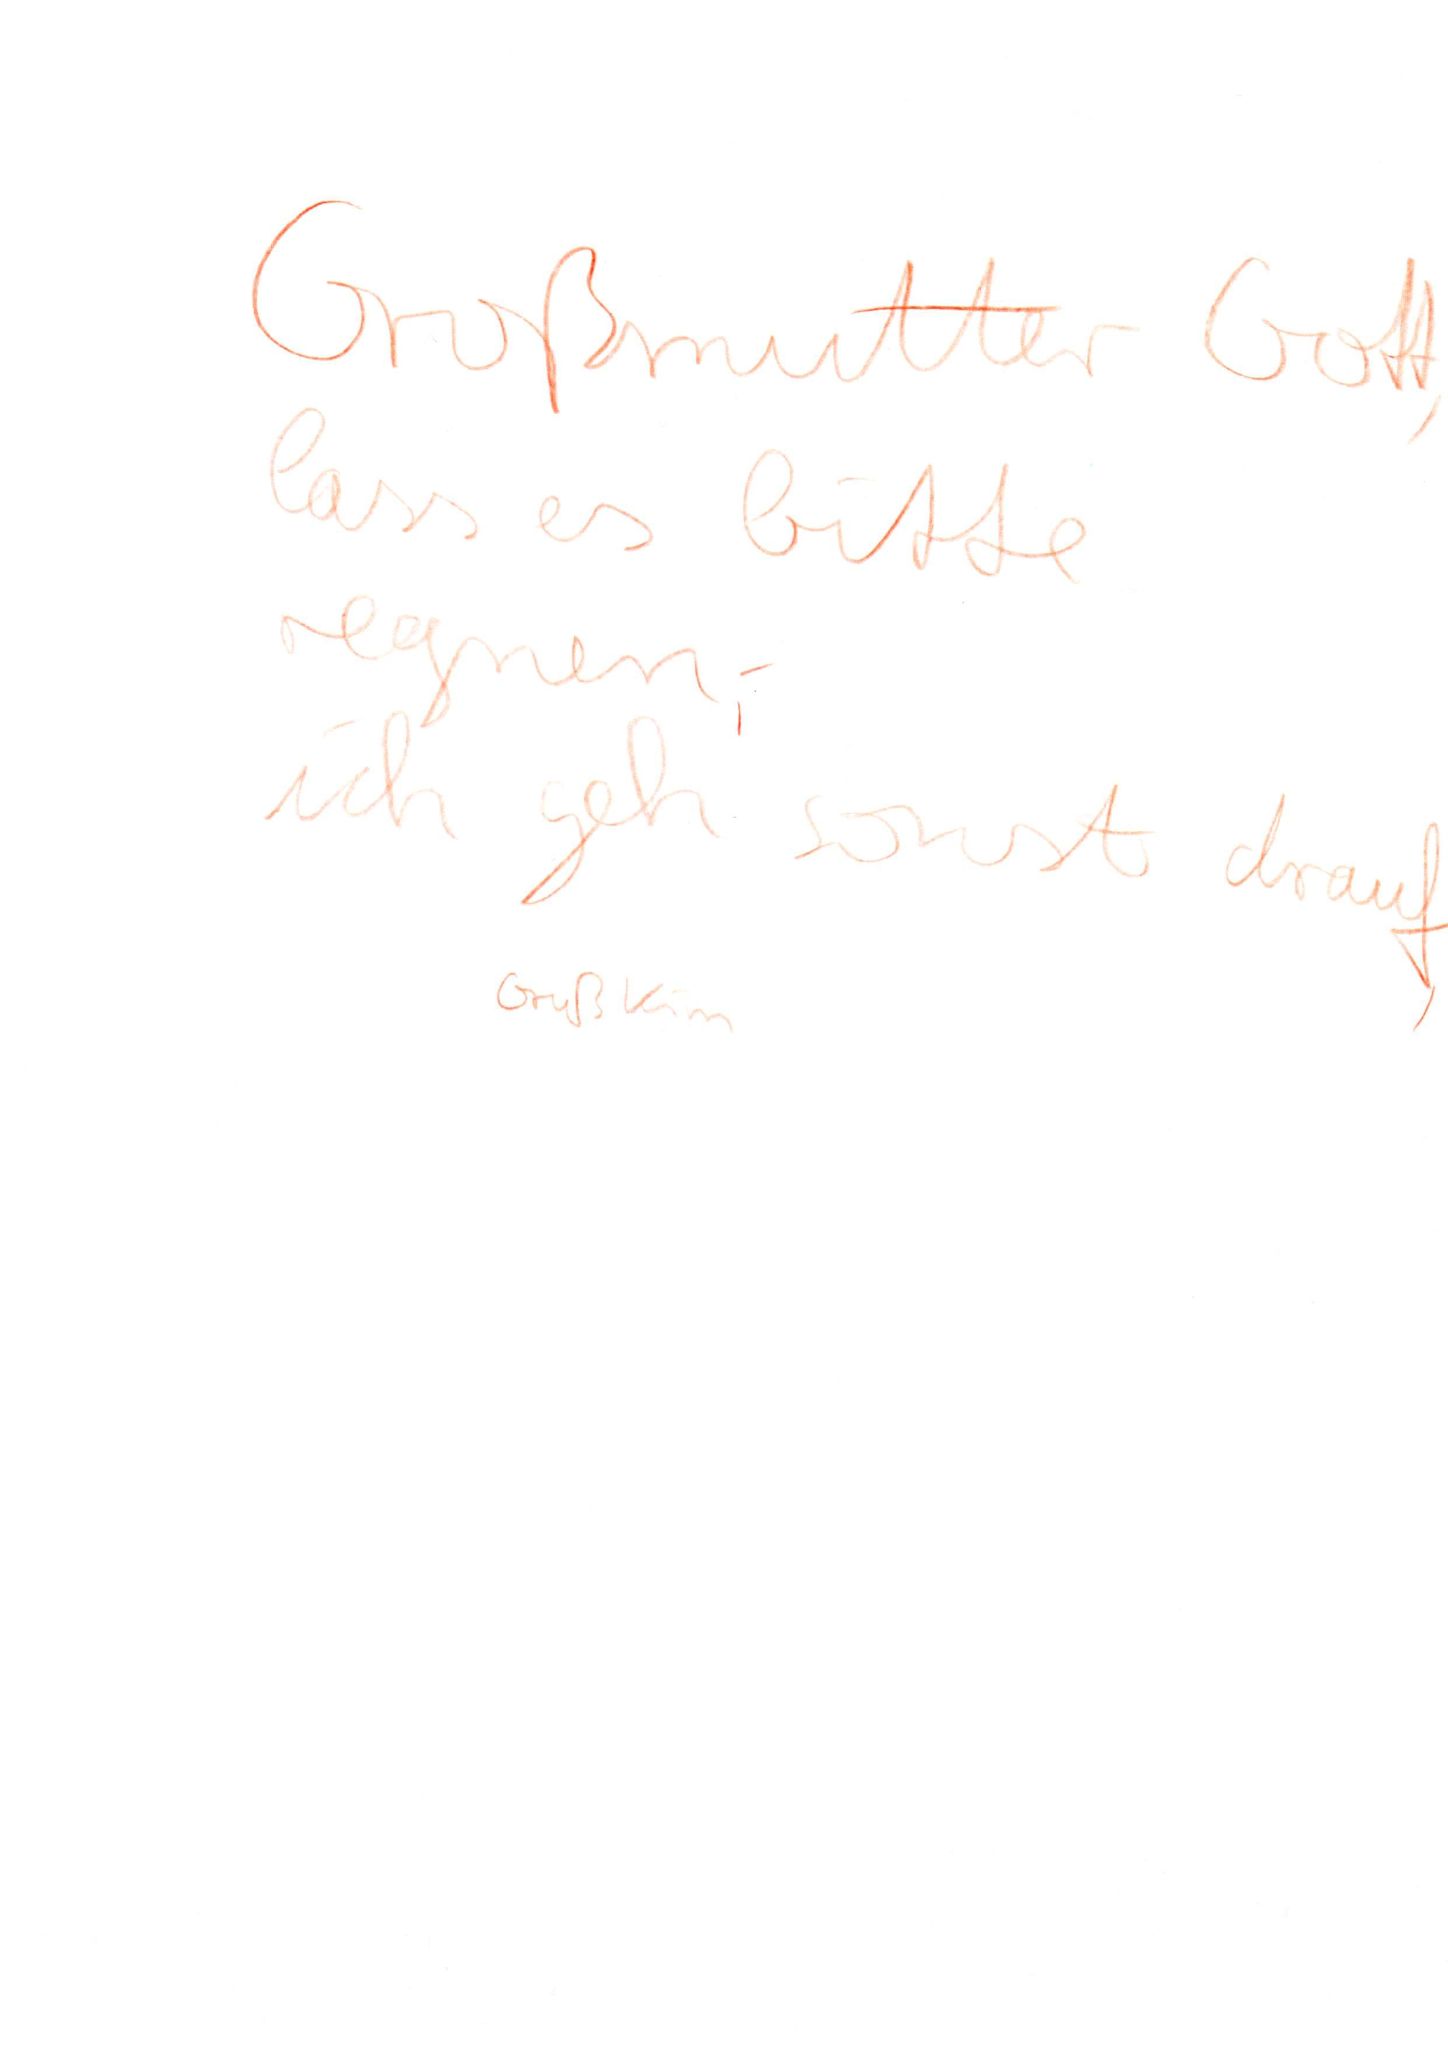 Großmutter Gott,
lass es bitte
regnen,-
ich geh sonst drauf,
Gruß Kim